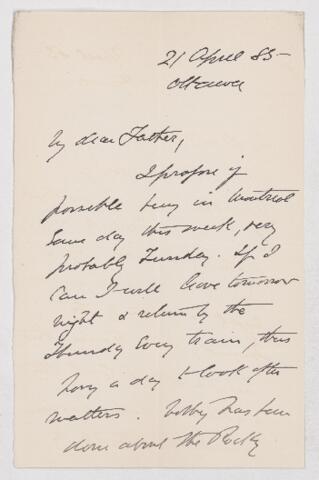 21 April 85
Ottawa
My dear Father,
I propose if
possible being in Montreal
some day this week, very
probably Tuesday. If I
can I will leave tomorrow
night & return by the
Thursday Evening train, thus
having a day to look after
matters. Nothing has been
done about the Rocky